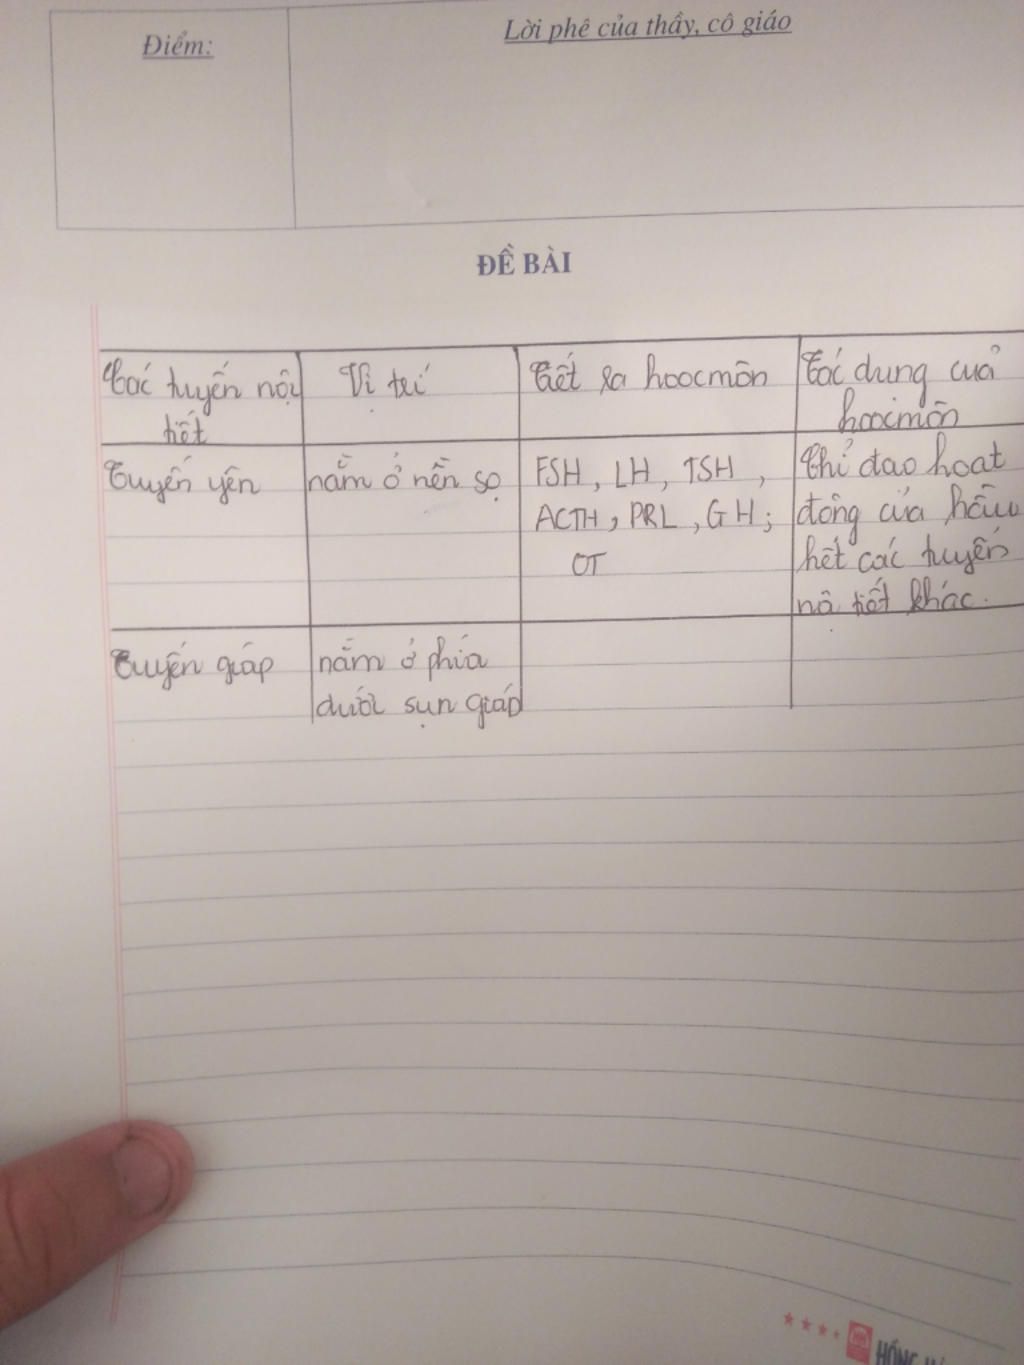 Điểm:
Lời phê của thầy, cô giáo
ĐỀ BÀI
Các tuyến nội
tiết
Vị trí
Tiết ra hoocmôn
Tác dụng của
hoocmôn
Tuyến yên
nằm ở nền sọ
FSH, LH, TSH,
ACTH, PRL, GH;
OT
Chỉ đạo hoạt
động của hầu
hết các tuyến
nô tiết khác.
Tuyến giáp
nằm ở phía
dưới sụn giáp
HỒNG